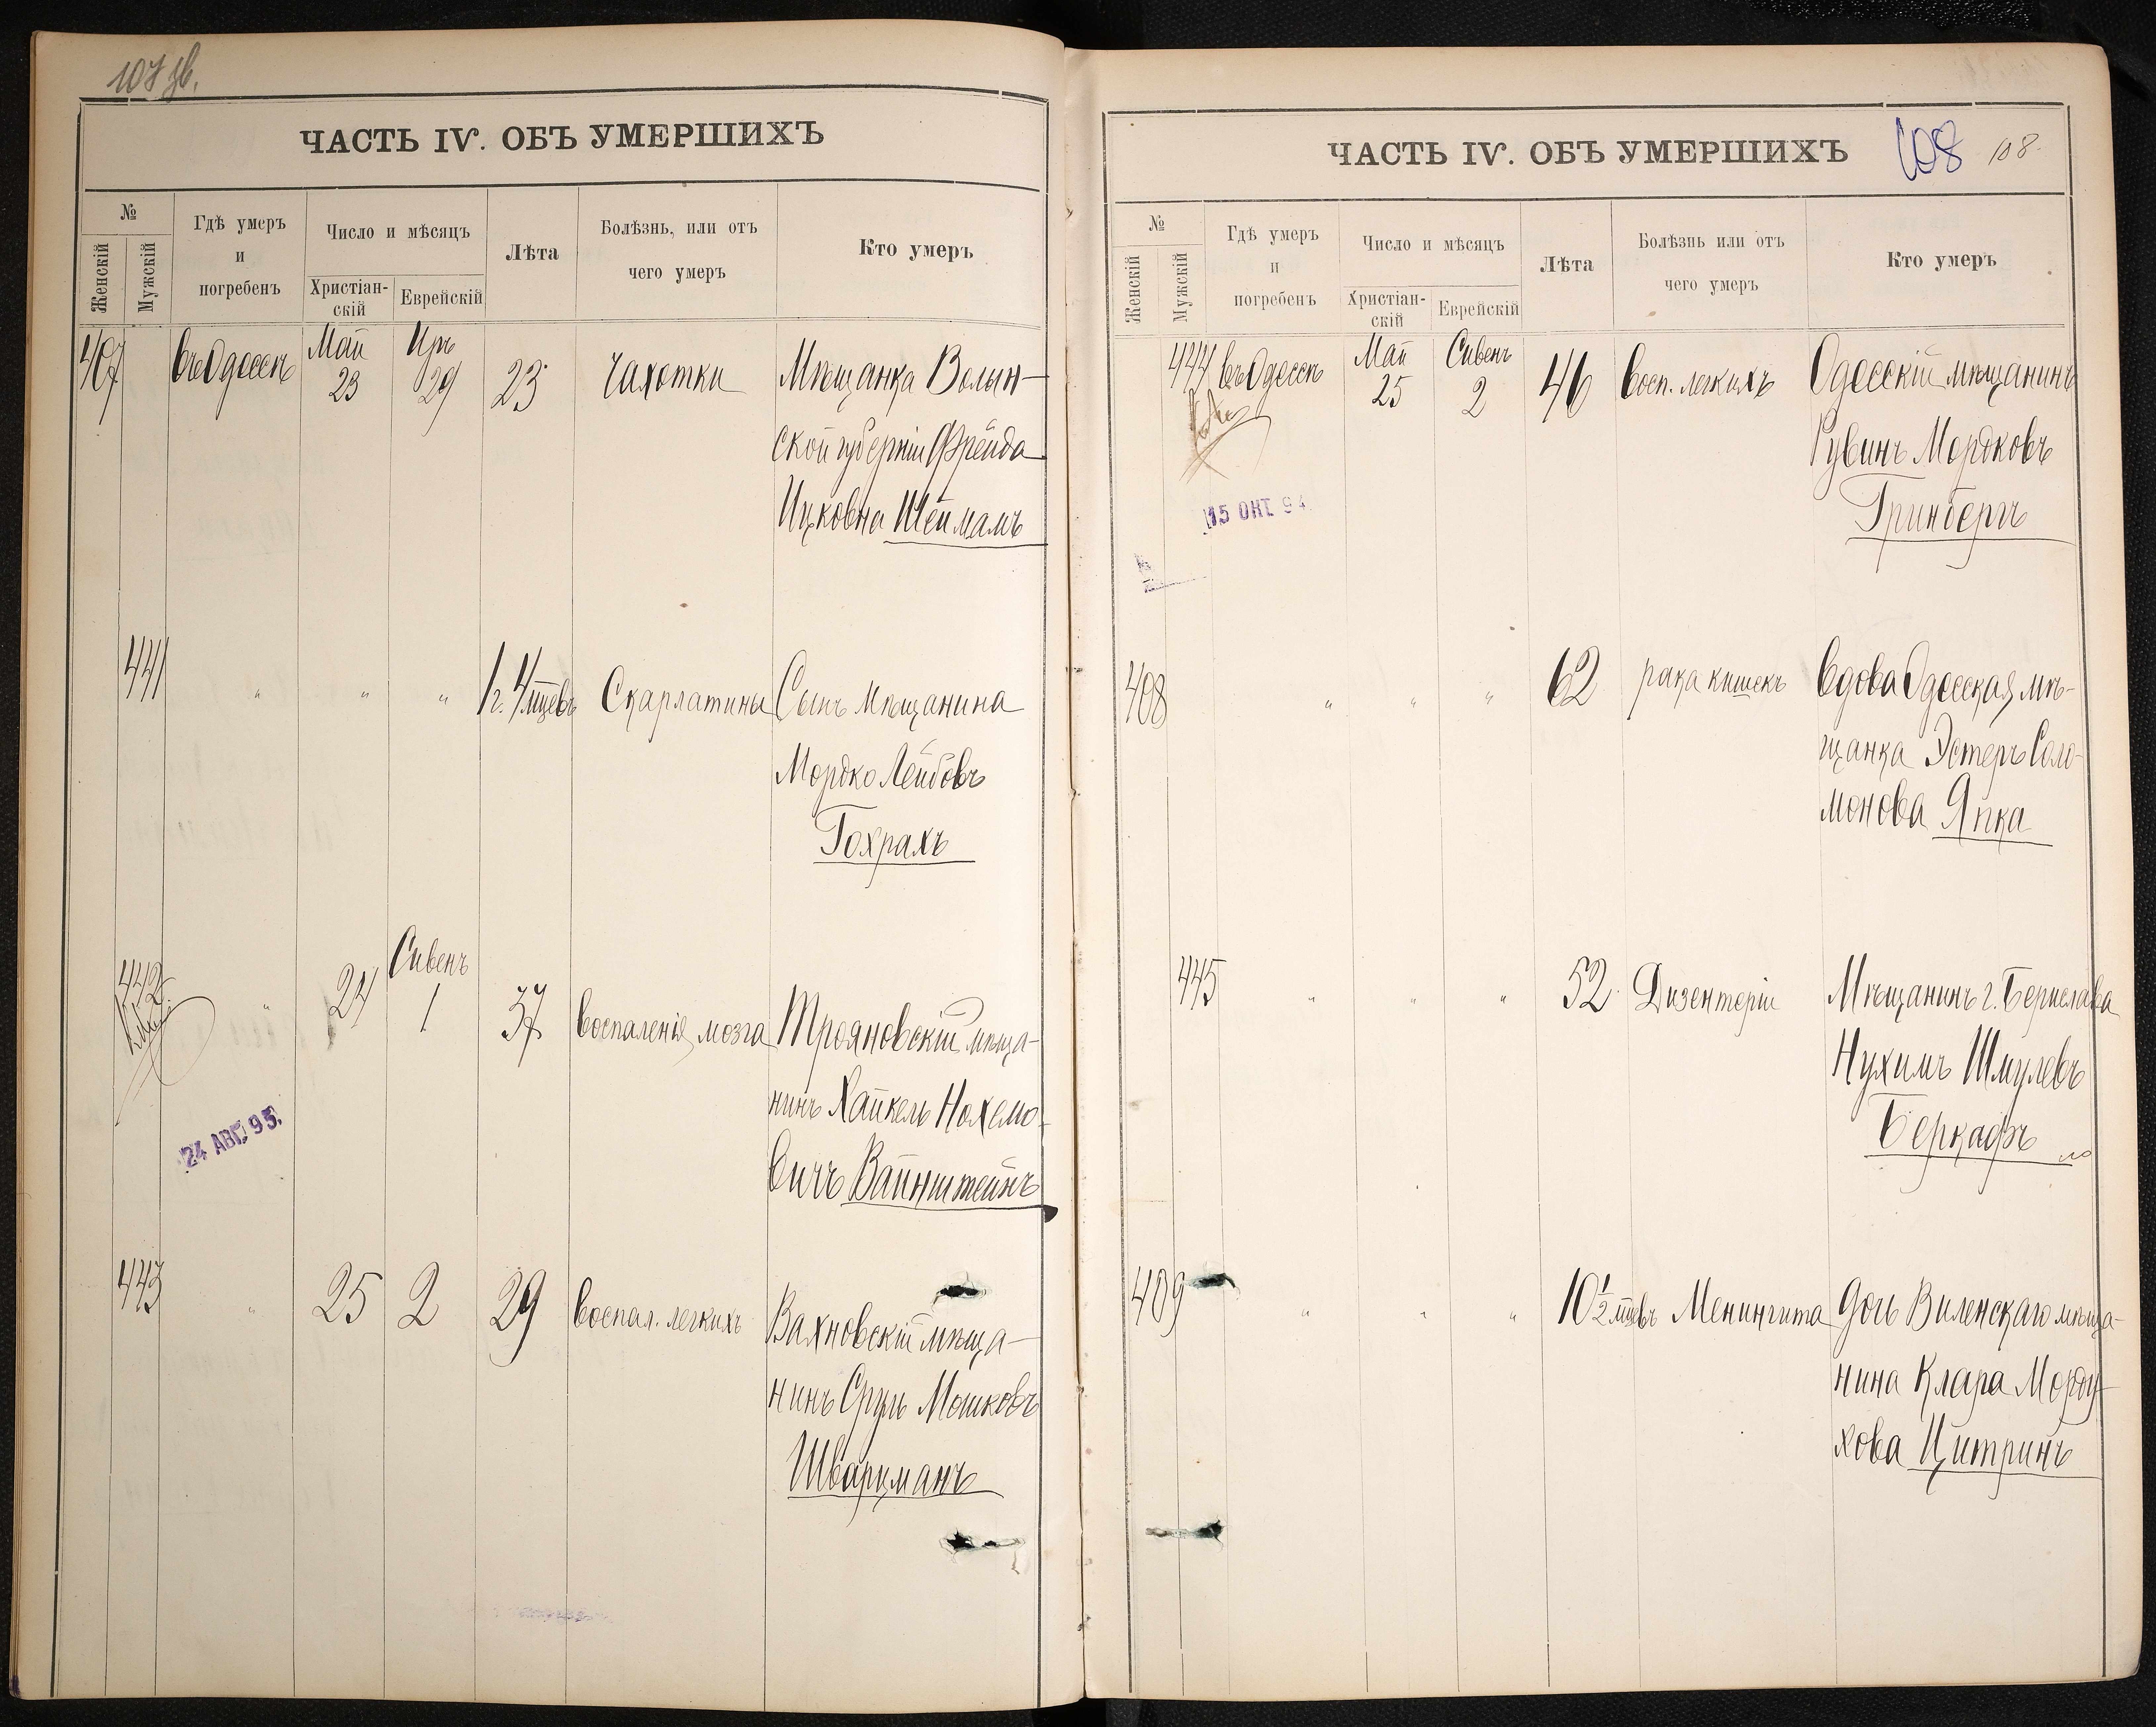 ЧАСТЬ IV. ОБЪ УМЕРШИХЪ
№
Женскій
Мужскій
Гдѣ умеръ
и
погребенъ
Число и мѣсяцъ
Христіан-
скій
Еврейскій
Лѣта
Болѣзнь, или отъ
чего умеръ
Кто умеръ
407 въ Одессѣ Май 23 Иръ 29 23 Чахотки Мѣщанка Волын-
ской губерніи Фрейда
Ицковна Шейманъ
441 " " " 1 г. 4 мцевъ Скарлатины Сынъ мѣщанина
Мордко Лейбовъ
Гохрахъ
442 " 24 Сивенъ 1 37 воспаленія мозга Трояновскій мѣща-
нинъ Хайкель Нохемо-
вичъ Вайнштейнъ
24 АВГ. 95.
443 " 25 2 29 воспал. легкихъ Вахновскій мѣща-
нинъ Сруль Мошковъ
Шварцманъ
ЧАСТЬ IV. ОБЪ УМЕРШИХЪ
108 108
№
Женскій
Мужскій
Гдѣ умеръ
и
погребенъ
Число и мѣсяцъ
Христіан-
скій
Еврейскій
Лѣта
Болѣзнь или отъ
чего умеръ
Кто умеръ
444 въ Одессѣ Май 25 Сивенъ 2 46 Восп. легкихъ Одесскій мѣщанинъ
Рувинъ Мордковъ
Гринбергъ
15 ОКТ 94
408 " " " 62 рака кишекъ Вдова Одесская мѣ-
щанка Эстеръ Соло-
монова Япка
445 " " " 52 Дизентеріи Мѣщанинъ г. Берислава
Нухимъ Шмулевъ
Беркафъ
409 " " " 10 1/2 мцевъ Менингита Дочь Виленскаго мѣща-
нина Клара Морду-
хова Цитринъ